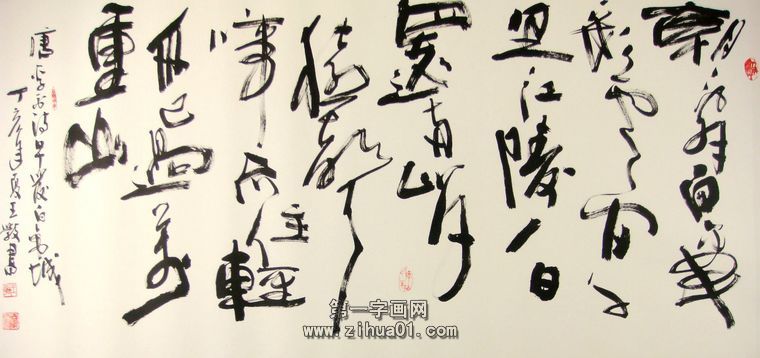 朝辞白帝
彩云间千
里江陵一日
還两岸
猿声
啼不住輕
舟已過萬
重山
唐李白诗早發白帝城
丁亥年夏王書
第一字画网
www.zihua01.com